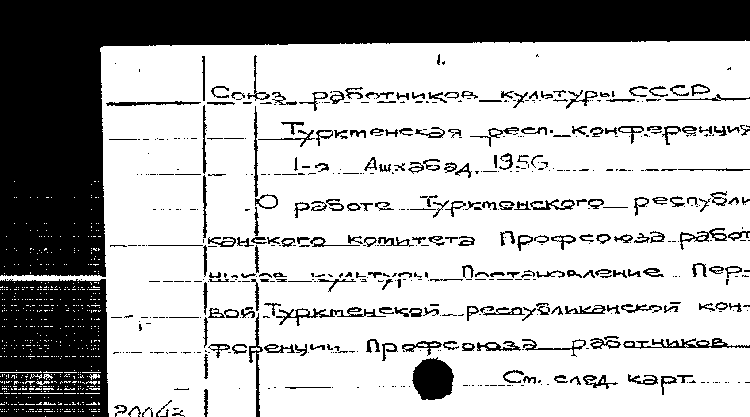 1.
Союз работников культуры СССР.
Туркменская респ. конференция
1-я Ашхабад. 1956
О работе Туркменского республи
канского комитета Профсоюза работ
ников культуры Постановление Пер-
вой Туркменской республиканской кон-
ференции Профсоюза работников
См. след. карт.